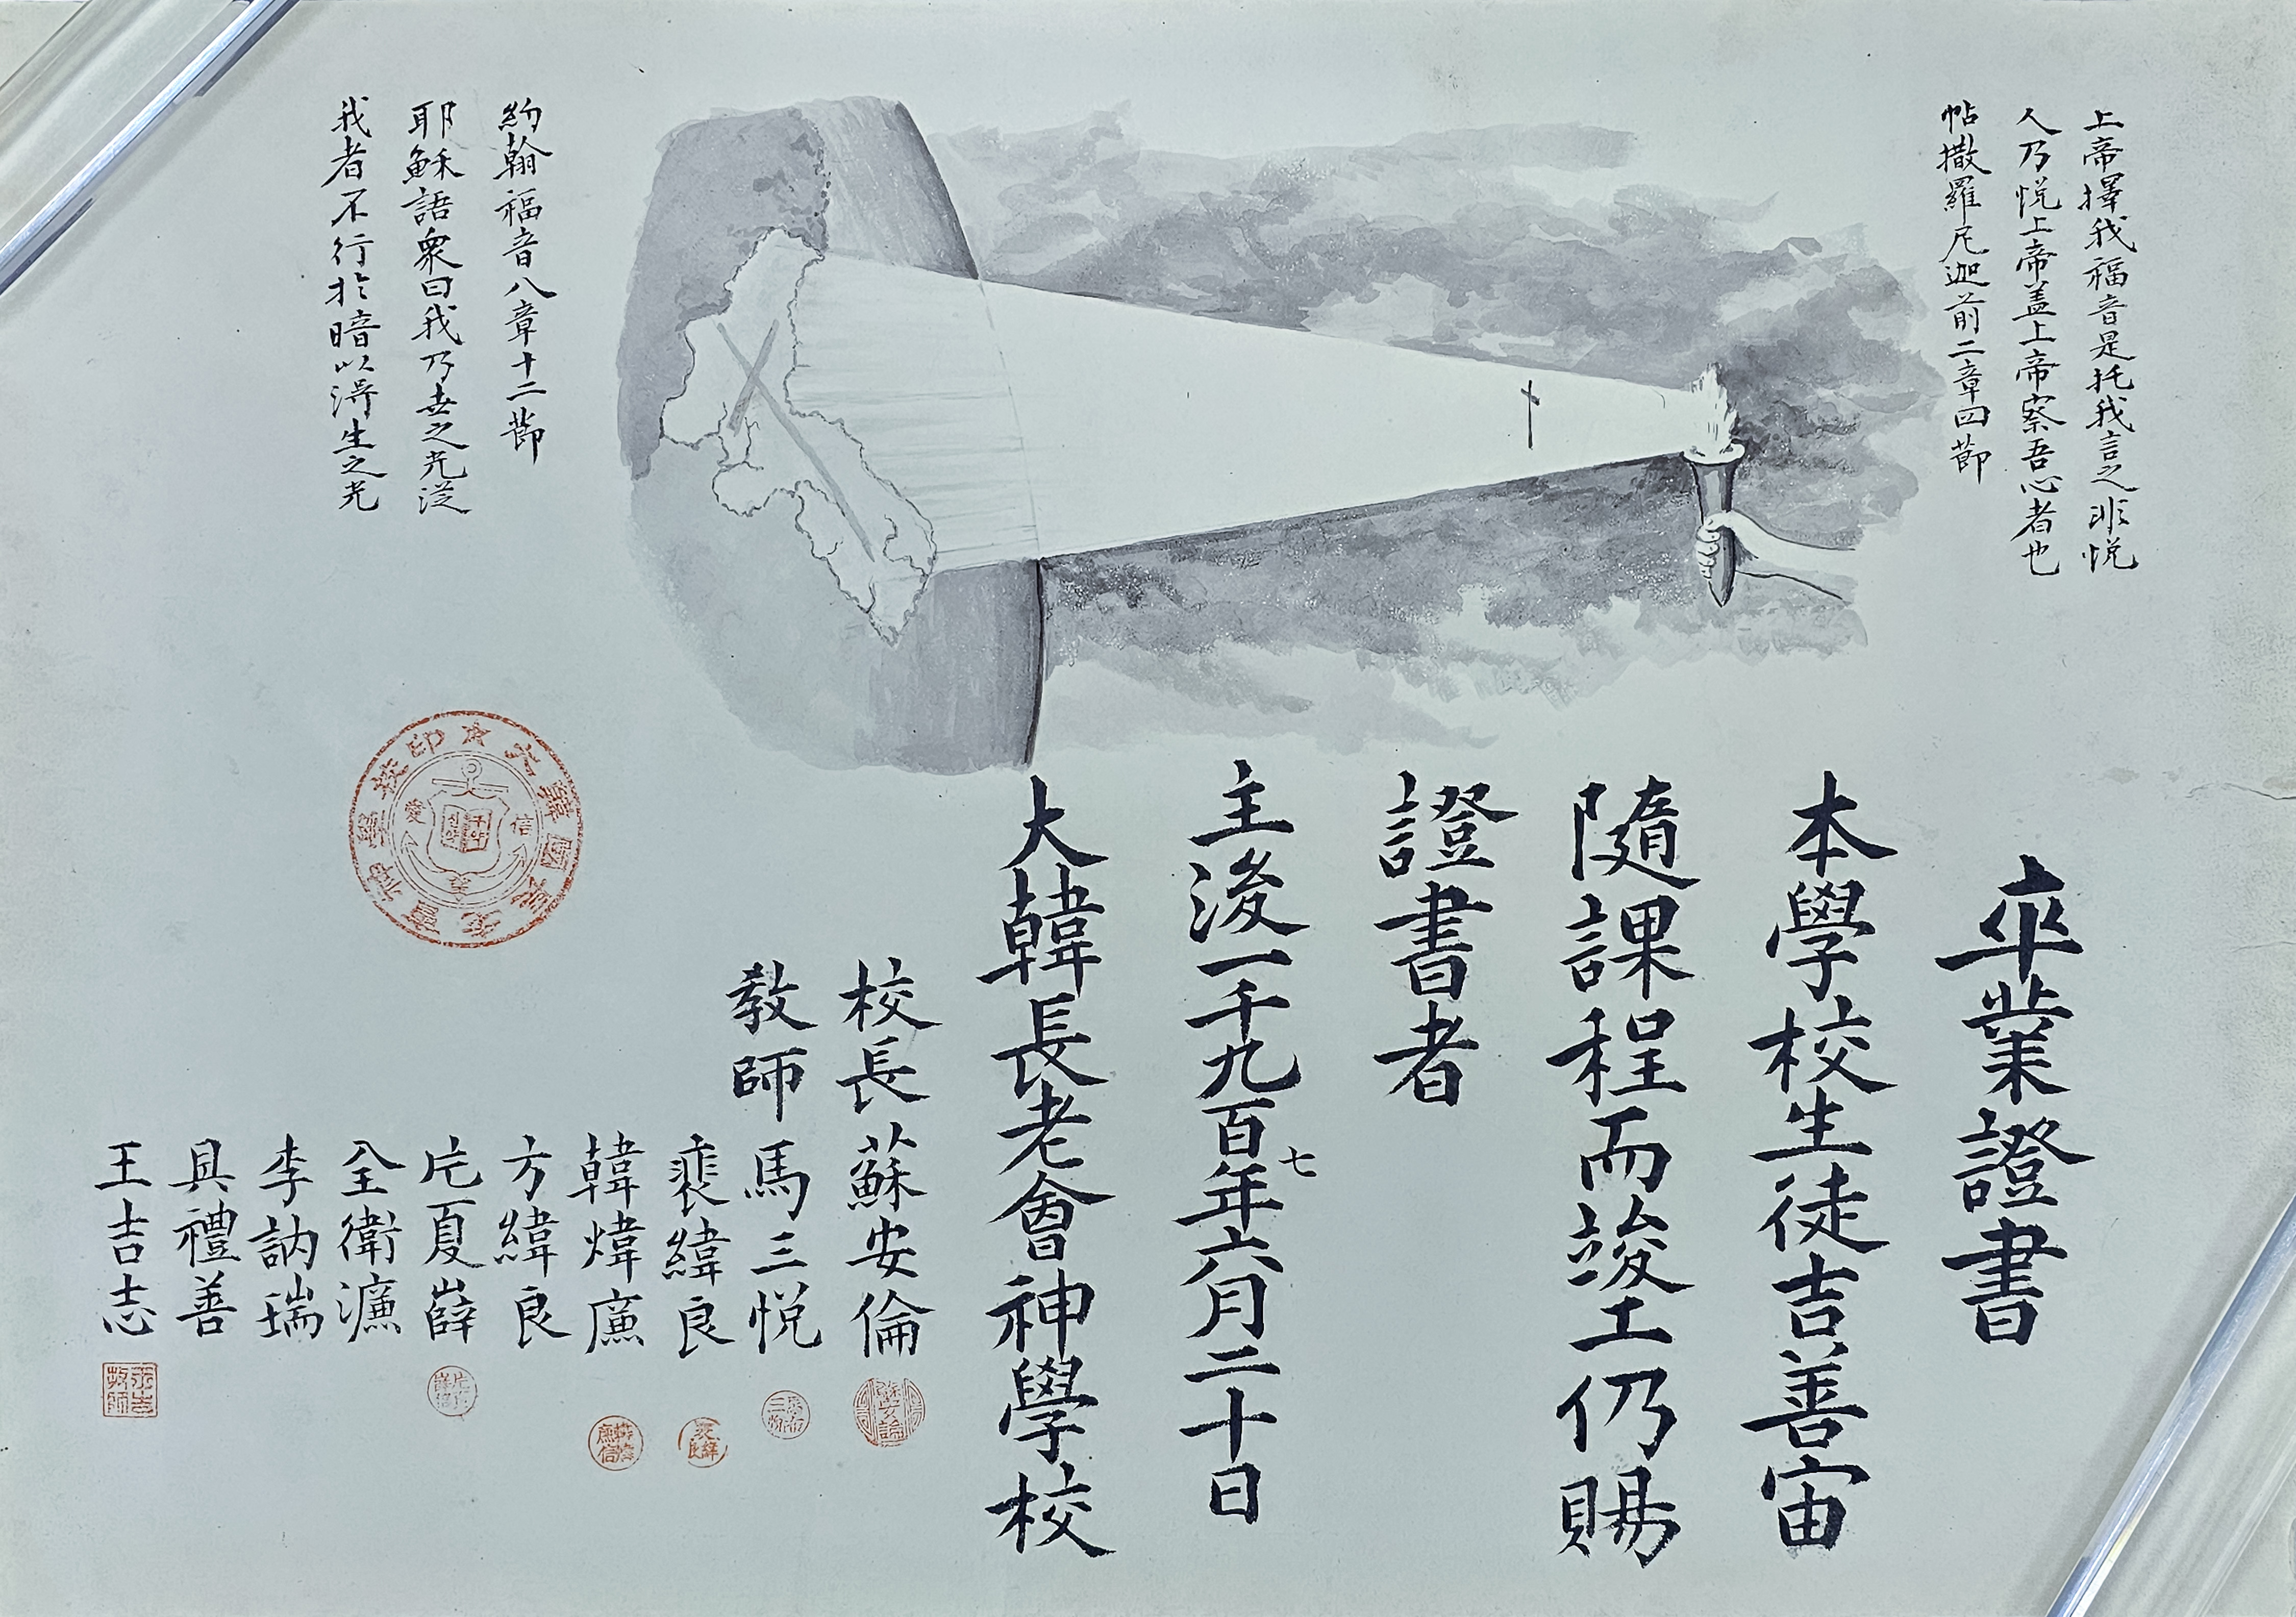 上帝擇我福音是托我言之非悦
人乃悦上帝盖上帝察吾心者也
帖撒羅尼迦前二章四節
約翰福音八章十二節
耶穌語衆曰我乃世之光從
我者不行於暗以得生之光
卒業證書
本學校生徒吉善宙
隨課程而竣工仍賜
證書者
主後一千九百七年六月二十日
大韓長老會神學校
校長蘇安倫
教師馬三悦
裵緯良
韓煒廉
方緯良
片夏薛
全衛濂
李訥瑞
具禮善
王吉志
大韓國長老會神學校印
信
愛